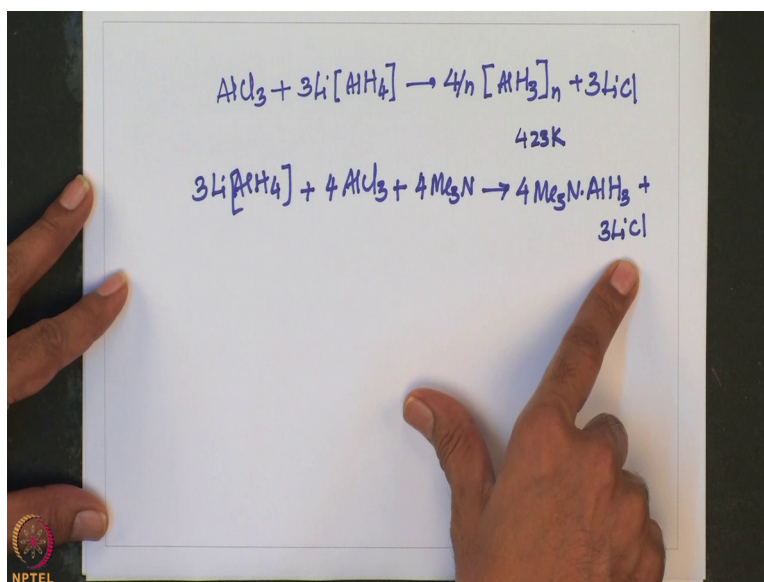 AlCl3 + 3Li[AlH4] → 4/n [AlH3]n + 3LiCl
423K
3Li[AlH4] + 4 AlCl3 + 4 Me3N → 4 Me3N·AlH3 +
3LiCl
NPTEL